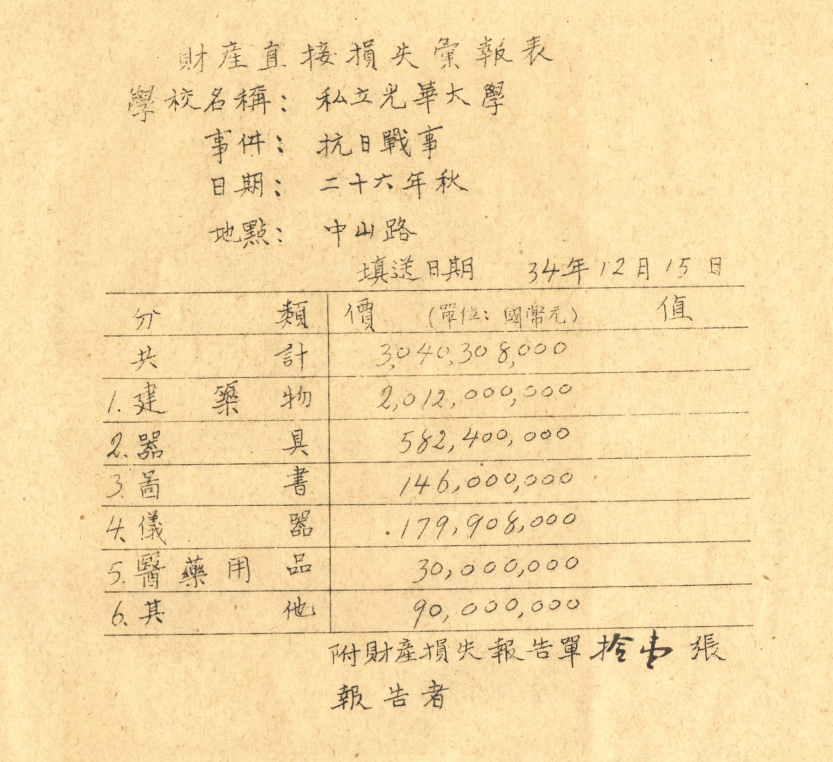 財產直接損失彙報表
學校名稱：私立光華大學
事件：抗日戰事
日期：二十六年秋
地點：中山路
填送日期 34年12月15日
分類 價 (單位：國幣元) 值
共計 3,040,308,000
1.建築物 2,012,000,000
2.器具 582,400,000
3.圖書 146,000,000
4.儀器 179,908,000
5.醫藥用品 30,000,000
6.其他 90,000,000
附財產損失報告單拾壹張
報告者